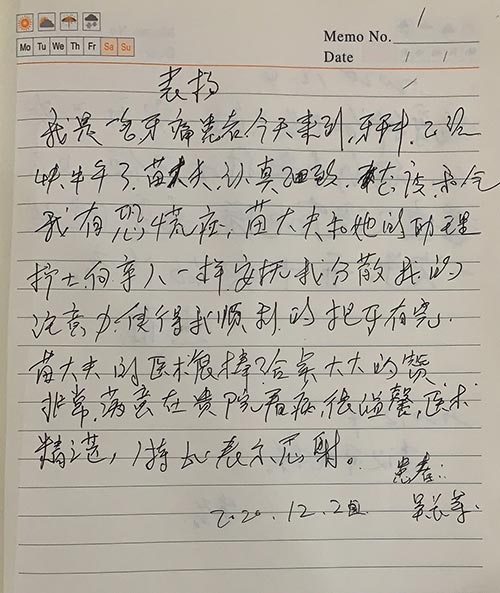 Memo No.
Mo Tu We Th Fr Sa Su
Date / /
表扬
我是一名牙痛患者今天来到,牙科,已经
快半年了,苗大夫,认真细致,态度和气
我有恐慌症,苗大夫和她的助理
护士向亲人一样安抚我分散我的
注意力使得我顺利的把牙看完.
苗大夫的医术很棒给实大大的赞
非常满意在贵院看症,很温馨,医术
精湛,特此表示感谢。
患者:
2020.12.2